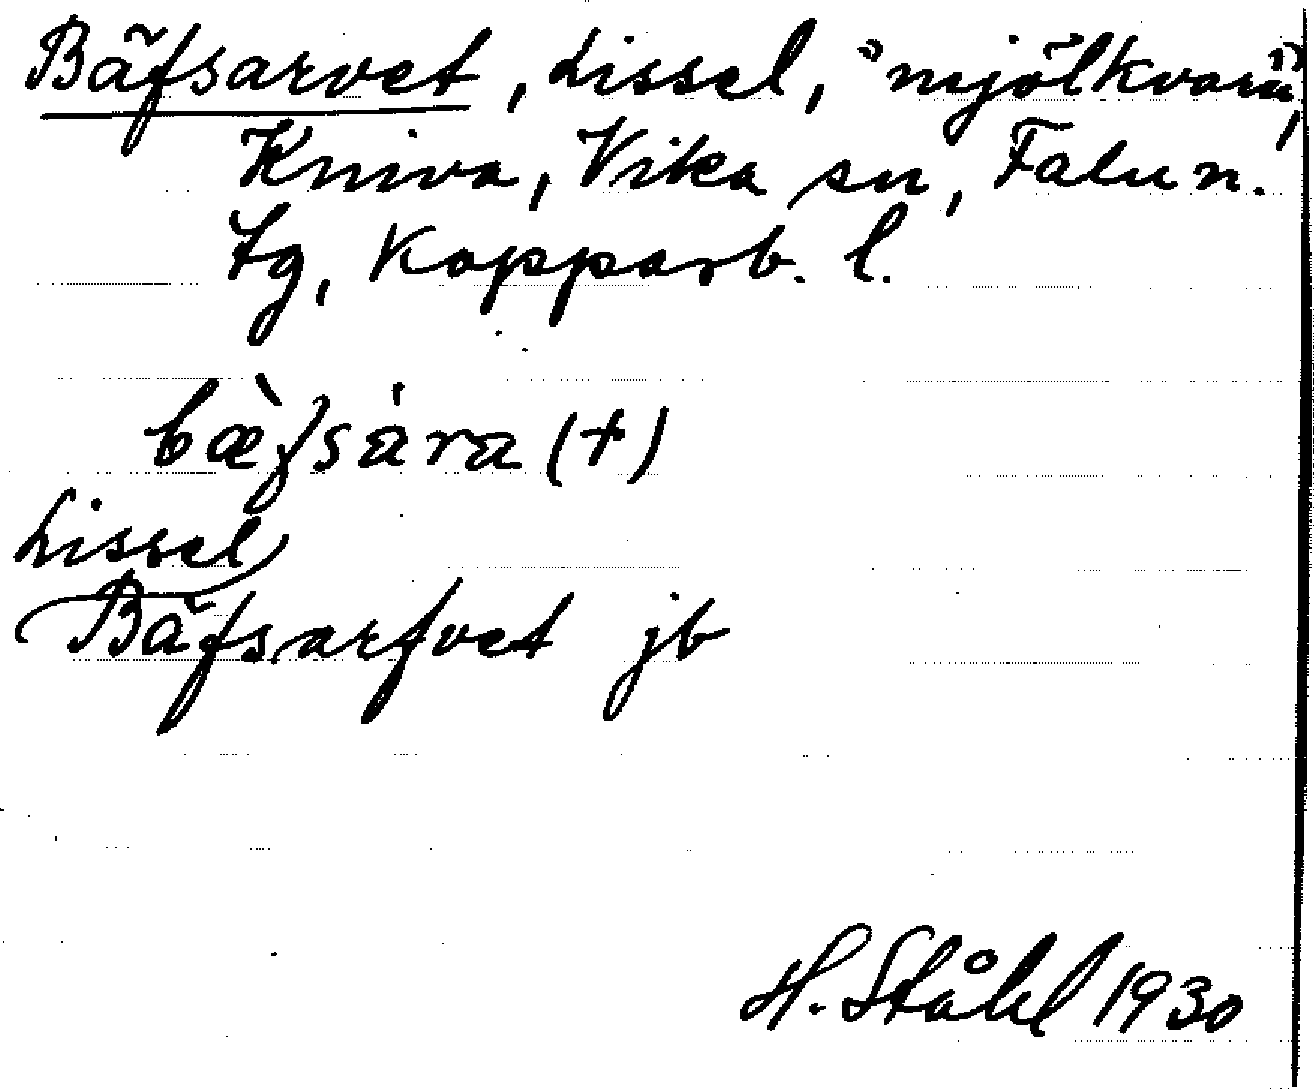 Bäfsarvet, Lissel, "mjölkvarn",
Kniva, Vika sn, Falu n.
tg, Kopparb. l.
bæ̀fsára (+)
Lissel
Bäfsarfvet jb
H. Ståhl 1930